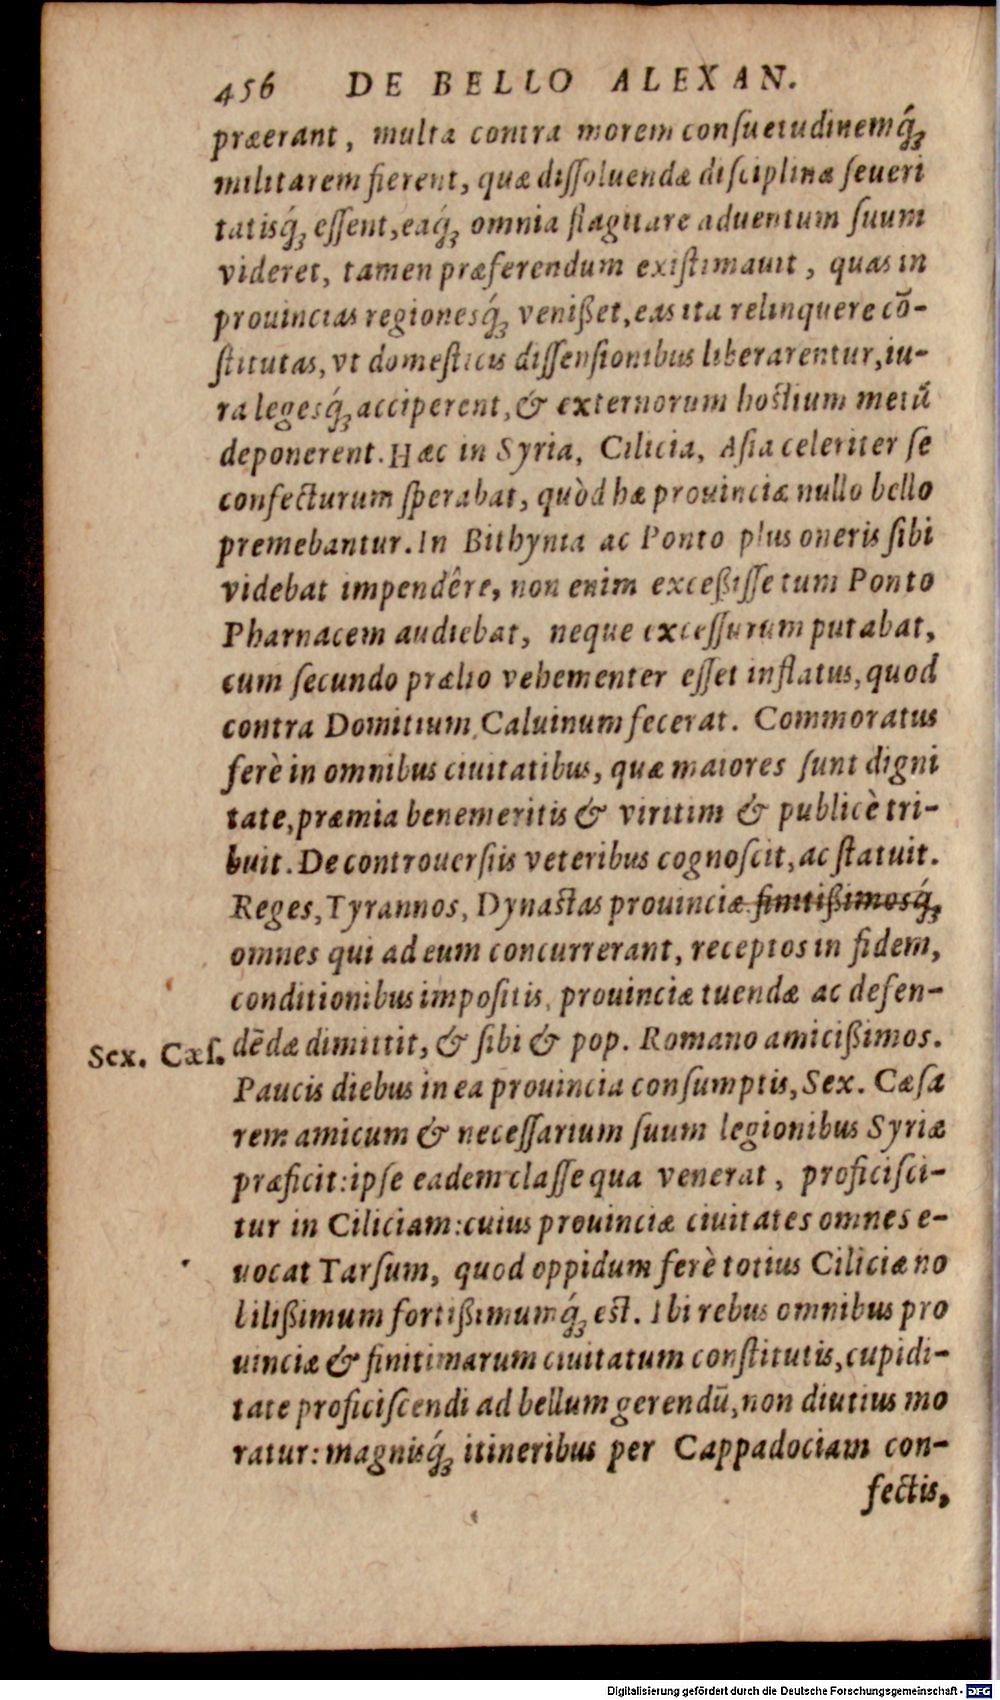 456 DE BELLO ALEXAN.
præerant, multa contra morem consuetudinemq́ꝫ
militarem fierent, quæ dissoluendæ disciplinæ seueri
tatisq́ꝫ essent, eaq́ꝫ omnia flagitare aduentum suum
videret, tamen præferendum existimauit, quas in
prouincias regionesq́ꝫ venißet, eas ita relinquere cō-
stitutas, vt domesticis dissensionibus liberarentur, iu-
ra legesq́ꝫ acciperent, & externorum hostium metū
deponerent. Hæc in Syria, Cilicia, Asia celeriter se
confecturum sperabat, quòd hæ prouinciæ nullo bello
premebantur. In Bithynia ac Ponto plus oneris sibi
videbat impendêre, non enim exceßisse tum Ponto
Pharnacem audiebat, neque excessurum putabat,
cum secundo prælio vehementer esset inflatus, quod
contra Domitium Caluinum fecerat. Commoratus
ferè in omnibus ciuitatibus, quæ maiores sunt digni
tate, præmia benemeritis & viritim & publicè tri-
buit. De controuersiis veteribus cognoscit, ac statuit.
Reges, Tyrannos, Dynastas prouinciæ finitißimosq́ꝫ
omnes qui ad eum concurrerant, receptos in fidem,
conditionibus impositis, prouinciæ tuendæ ac defen-
Sex. Cæs. dēdæ dimittit, & sibi & pop. Romano amicißimos.
Paucis diebus in ea prouincia consumptis, Sex. Cæsa
rem amicum & necessarium suum legionibus Syriæ
præficit: ipse eadem classe qua venerat, proficisci-
tur in Ciliciam: cuius prouinciæ ciuitates omnes e-
uocat Tarsum, quod oppidum ferè totius Ciliciæ no
bilißimum fortißimumq́ꝫ est. Ibi rebus omnibus pro
uinciæ & finitimarum ciuitatum constitutis, cupidi-
tate proficiscendi ad bellum gerendū, non diutius mo
ratur: magnisq́ꝫ itineribus per Cappadociam con-
fectis,
Digitalisierung gefördert durch die Deutsche Forschungsgemeinschaft - DFG